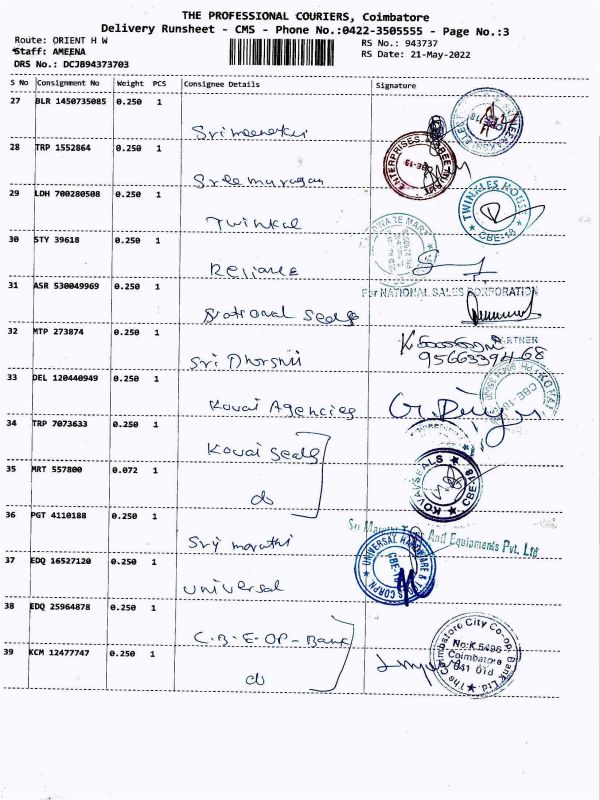 THE PROFESSIONAL COURIERS, Coimbatore
Delivery Runsheet - CMS - Phone No.:0422-3505555 - Page No.:3
Route: ORIENT H W
Staff: AMEENA
DRS No.: DCJB94373703
RS No.: 943737
RS Date: 21-May-2022
S No Consignment No Weight PCS Consignee Details Signature
27 BLR 1450735085 0.250 1
Sri meenatchi
28 TRP 1552864 0.250 1
Sree murugan
ENTERPRISES
CBE-18
29 LDH 700280508 0.250 1
Twinkal
TWINKLES HOUSE
CBE-18
30 STY 39618 0.250 1
Reliance
31 ASR 530049969 0.250 1
National Seals
For NATIONAL SALES CORPORATION
PARTNER
32 MTP 273874 0.250 1
Sri Dharshii
9566339468
33 DEL 120440949 0.250 1
Kovai Agencies
CBE-18
34 TRP 7073633 0.250 1
Kovai Seals
35 MRT 557800 0.072 1
do
KOVAI SEALS
CBE-18
36 PGT 4110188 0.250 1
Sri marathi
And Equipments Pvt. Ltd
37 EDQ 16527120 0.250 1
Universal
UNIVERSAL HARDWARE & TOOLS CORPN
CBE-18
38 EDQ 25964878 0.250 1
C.B-E-OP-Bank
39 KCM 12477747 0.250 1
do
The Coimbatore City Co-op; Bank Ltd.
No:K 5496
Coimbatore
641 018